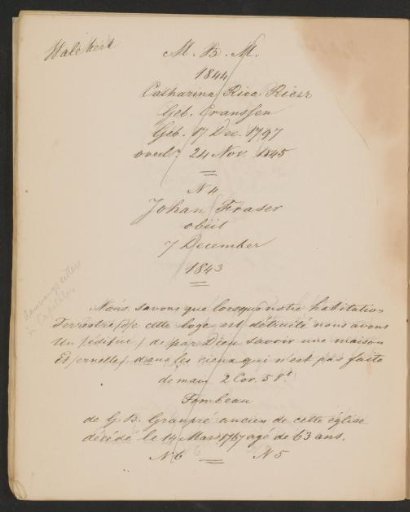 Halebert
M. B. M.
1844
Catharina Rica Riesz
Geb. Cranssen
Geb. 17 Dec. 1797
overl. 24 Nov. 1845
N 4
Johan Fraser
obiit
7 December
1843
Nous savons que lorsque notre habitation
Terrestre de cette loge est détruite nous avons
un édifice, de par Dieu savoir une maison
Eternelle, dans les cieux qui n'est pas faite
de main 2 Cor. 5 8t
Tombeau
de G. B. Granpré ancien de cette église
décédé le 14 Mars 1767 agé de 63 ans.
N 6 N 5